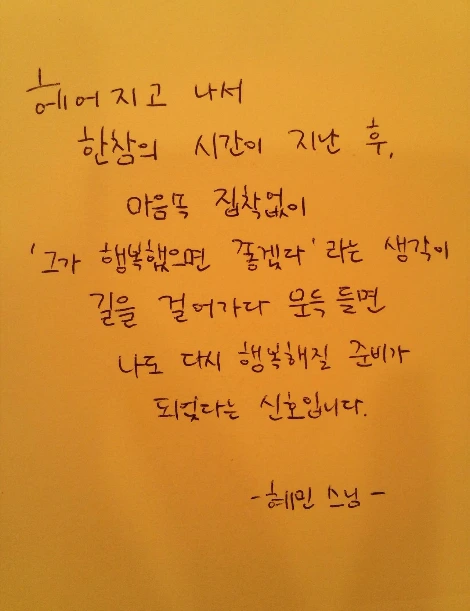 헤어지고 나서
한참의 시간이 지난 후,
마음속 집착없이
'그가 행복했으면 좋겠다'라는 생각이
길을 걸어가다 문득 들면
나도 다시 행복해질 준비가
되었다는 신호입니다.
-혜민 스님-